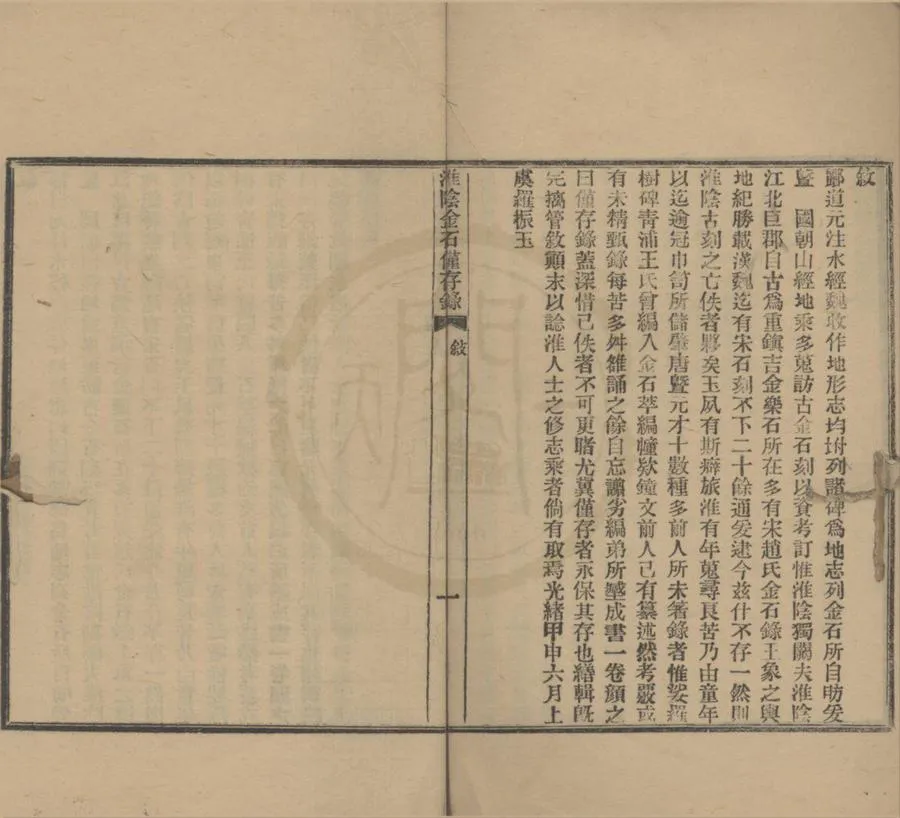 敘
酈道元注水經魏收作地形志均坿列諸碑爲地志列金石所自昉爰
暨　國朝山經地乘多蒐訪古金石刻以資考訂惟淮陰獨闕夫淮陰
江北巨郡自古爲重鎭吉金樂石所在多有宋趙氏金石錄王象之輿
地紀勝載漢魏迄有宋石刻不下二十餘通爰逮今茲什不存一然則
淮陰古刻之亡佚者夥矣玉夙有斯癖旅淮有年蒐尋良苦乃由童年
以迄逾冠巾笥所儲肇唐暨元才十數種多前人所未箸錄者惟娑羅
樹碑青浦王氏曾編入金石萃編幢欵鐘文前人已有纂述然考覈或
有未精甄錄每苦多舛雒誦之餘自忘譾劣編弟所墍成書一卷顏之
曰僅存錄蓋深惜已佚者不可更睹尤冀僅存者永保其存也繕輯旣
完擒管敘顚末以諗淮人士之修志乘者倘有取焉光緒甲申六月上
虞羅振玉
淮陰金石僅存錄
敘
一